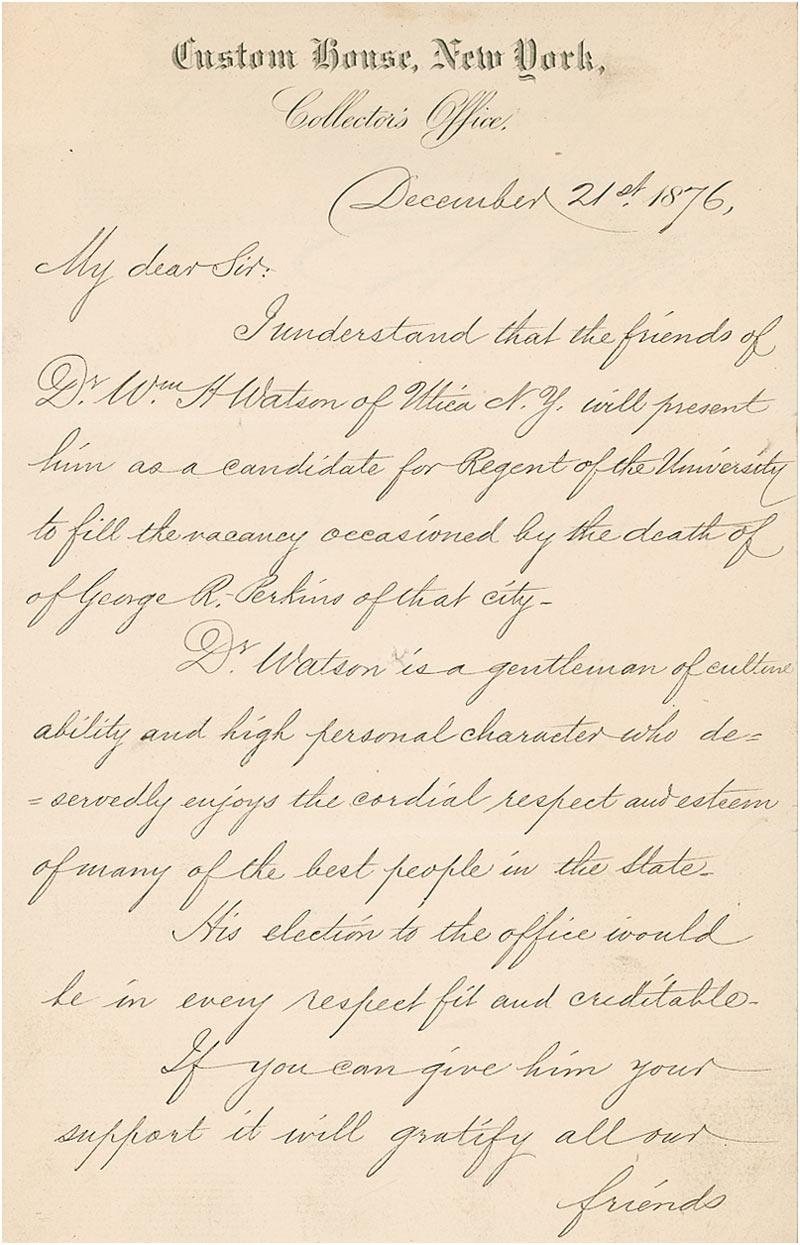 Custom House, New York,
Collector's Office.
December 21st. 1876,
My dear Sir:
I understand that the friends of
Dr. Wm H Watson of Utica N.Y. will present
him as a candidate for Regent of the University
to fill the vacancy occasioned by the death of
of George R. Perkins of that city-
Dr. Watson is a gentleman of culture
ability and high personal character who de=
=servedly enjoys the cordial respect and esteem
of many of the best people in the State-
His election to the office would
be in every respect fit and creditable-
If you can give him your
support it will gratify all our
friends